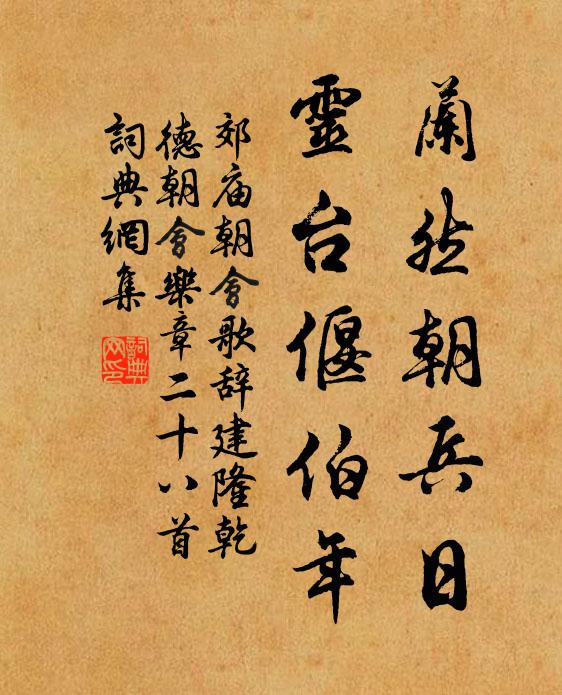 蘭然朝兵日
靈台偃伯年
郊庙朝會歌辞建隆乾
德朝會樂章二十八首
詞典網集
詞典
网印